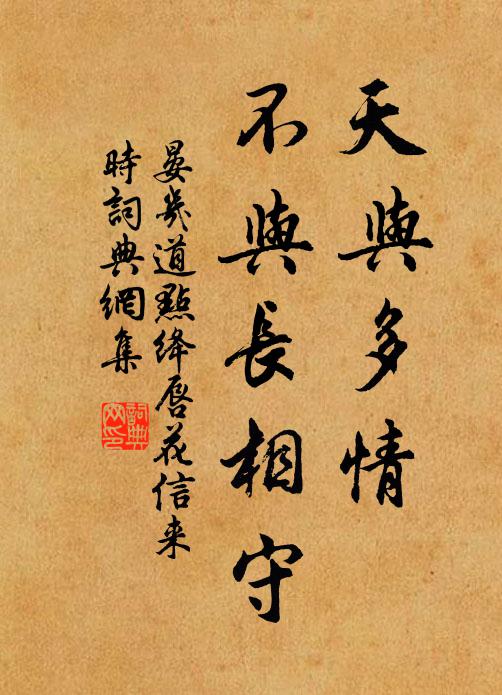 天與多情
不與長相守
晏幾道點絳唇花信来
時詞典網集
詞典
网印